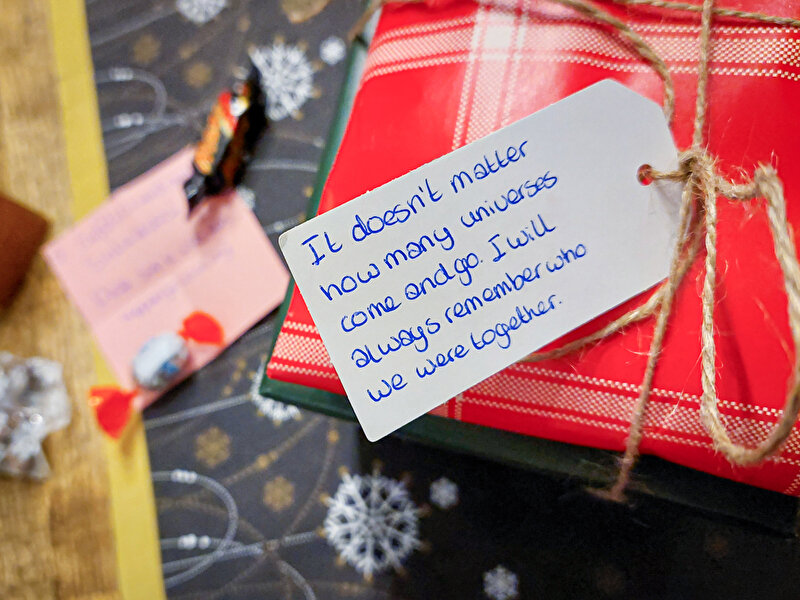 It doesn't matter
how many universes
come and go. I will
always remember who
we were together.